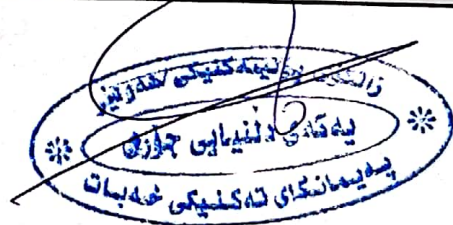 زانكۆی پۆلیتەكنیكی هەولێر
یەكەی دڵنیایی جۆری
پەیمانگای تەكنیكی خەبات